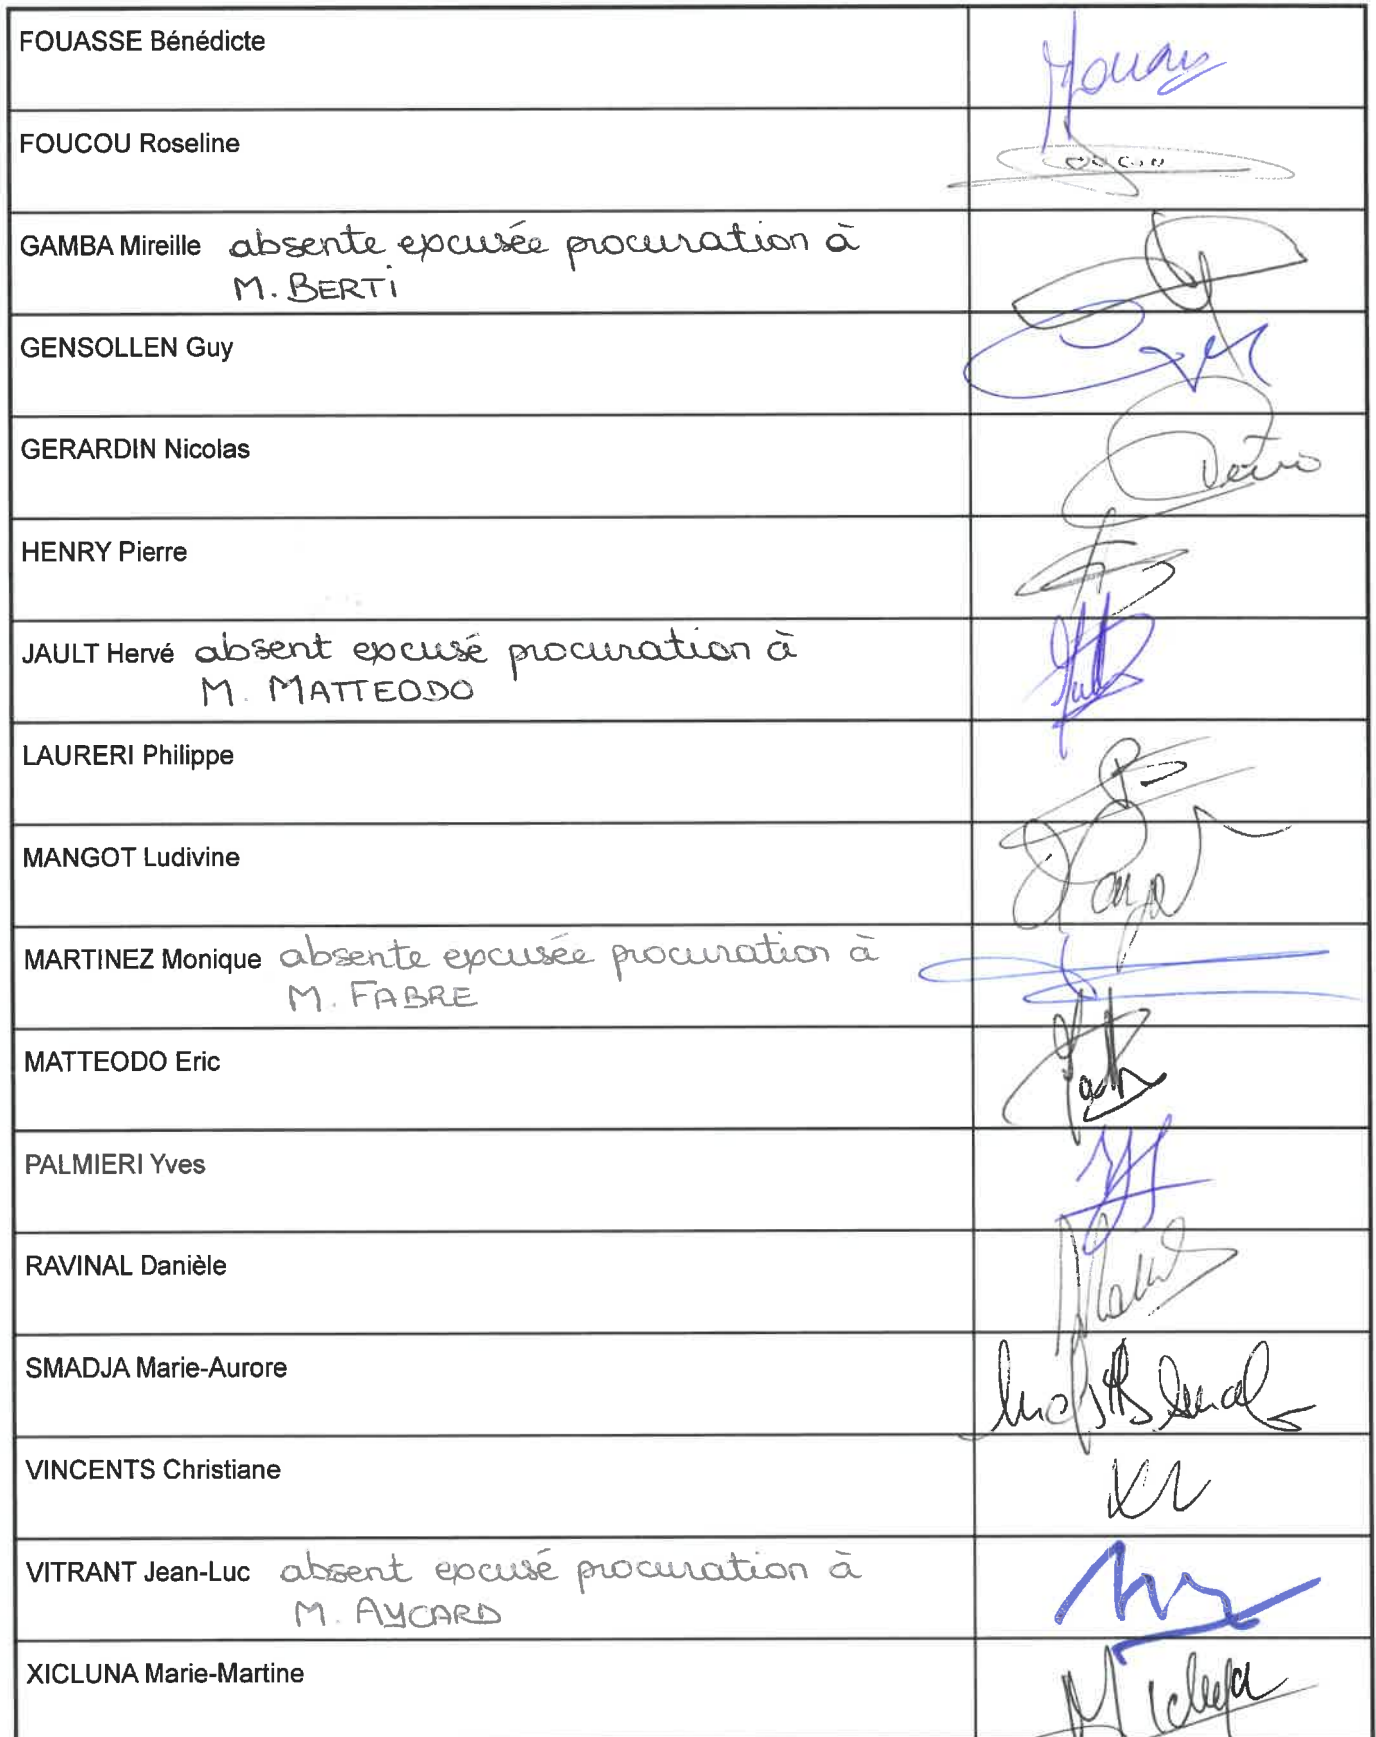 FOUASSE Bénédicte
FOUCOU Roseline
GAMBA Mireille absente excusée procuration à
M. BERTI
GENSOLLEN Guy
GERARDIN Nicolas
HENRY Pierre
JAULT Hervé absent excusé procuration à
M. MATTEODO
LAURERI Philippe
MANGOT Ludivine
MARTINEZ Monique absente excusée procuration à
M. FABRE
MATTEODO Eric
PALMIERI Yves
RAVINAL Danièle
SMADJA Marie-Aurore
VINCENTS Christiane
VITRANT Jean-Luc absent excusé procuration à
M. AYCARD
XICLUNA Marie-Martine